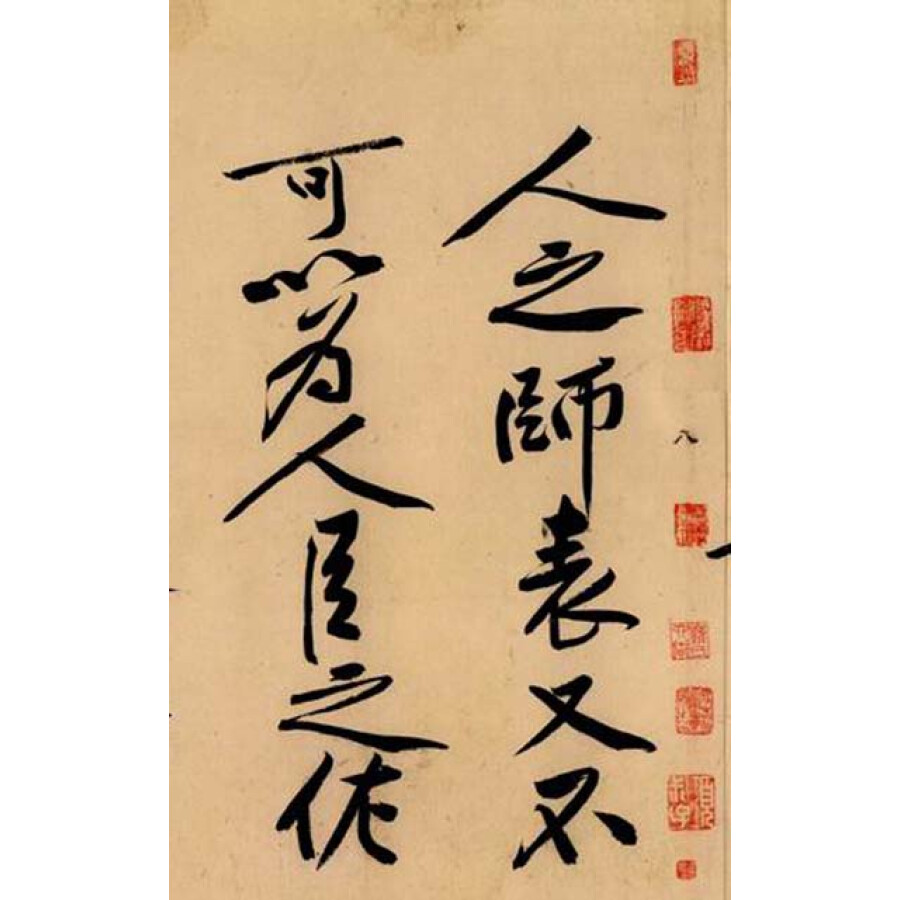 人之師表又不
可以為人臣之佐
八